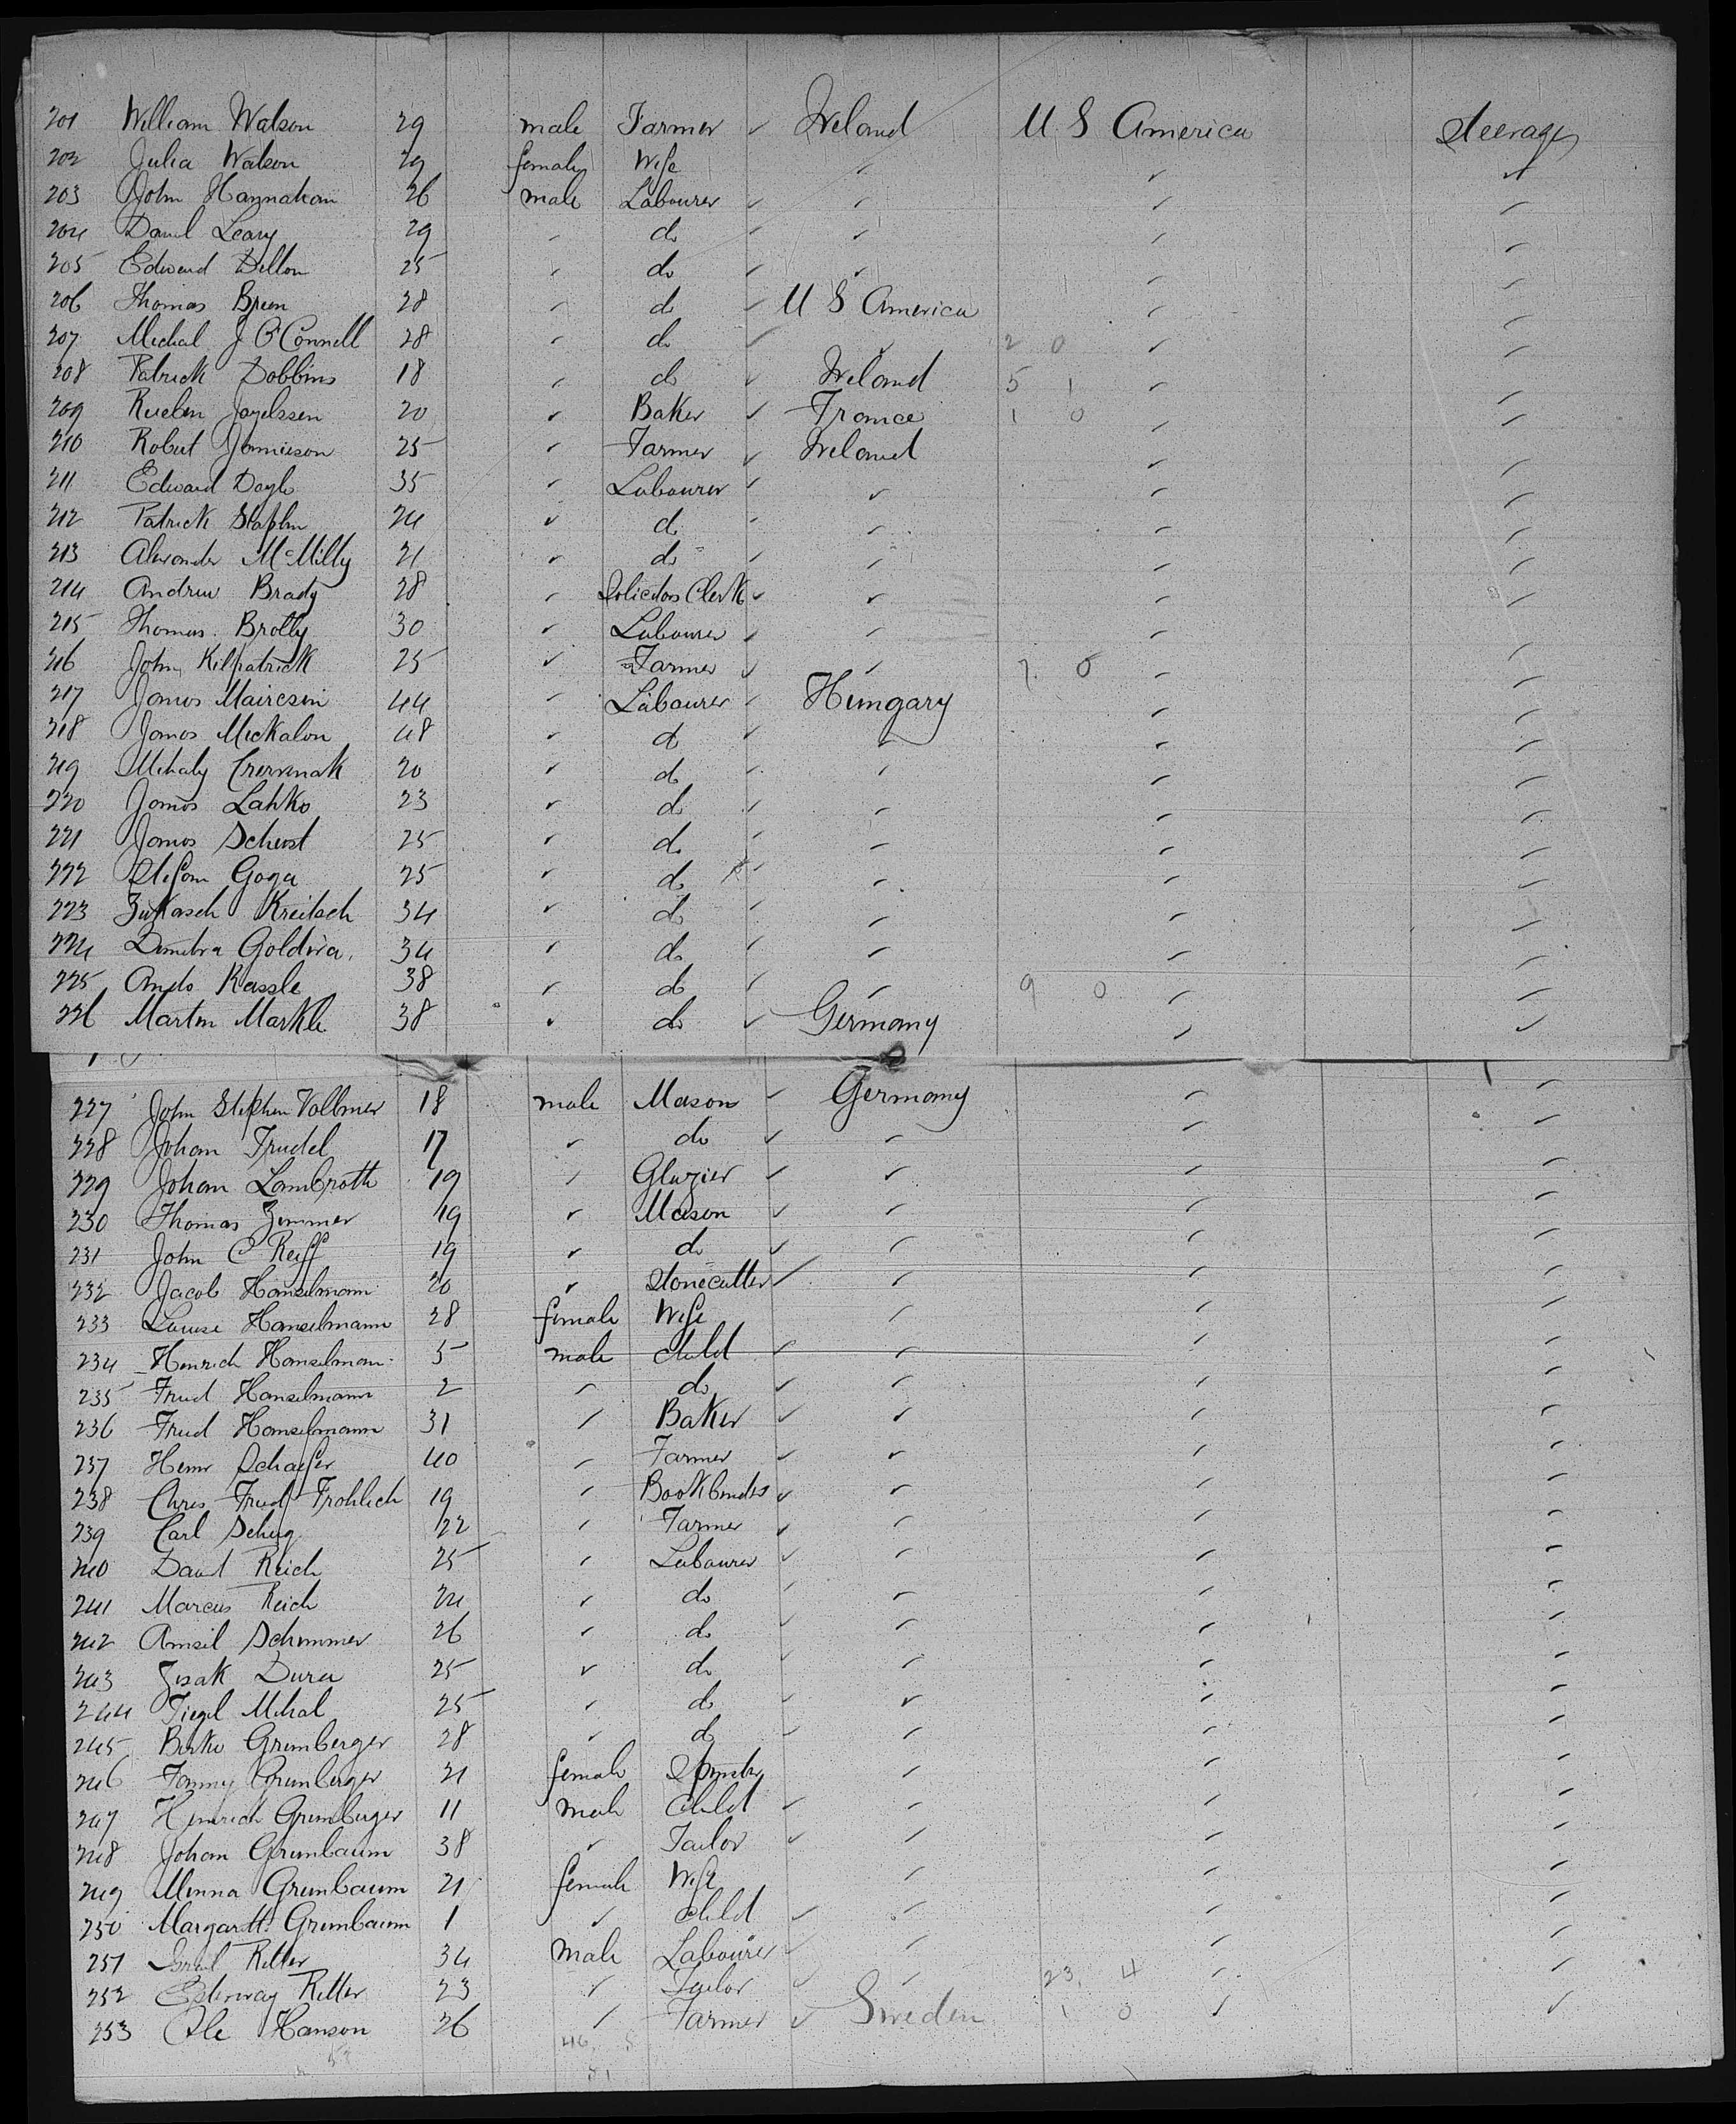 201 William Watson 29 male Farmer ✓ Ireland U S America Steerage
202 Julia Watson 29 female Wife ✓ ✓ ✓
203 John Hannahan 26 male Labourer ✓ ✓ ✓ ✓
204 Danl Leary 29 ✓ do ✓ ✓ ✓ ✓
205 Edward Dillon 25 ✓ do ✓ ✓ ✓ ✓
206 Thomas Breen 28 ✓ do ✓ U S America ✓ ✓
207 Michal J O'Connell 28 ✓ do ✓ ✓ 2 0 ✓ ✓
208 Patrick Dobbins 18 ✓ do ✓ Ireland 5 1 ✓ ✓
209 Rueben 20 ✓ Baker ✓ France 1 0 ✓ ✓
210 Robert Jamieson 25 ✓ Farmer ✓ Ireland ✓ ✓
211 Edward Doyle 35 ✓ Labourer ✓ ✓ ✓ ✓
212 Patrick 24 ✓ do ✓ ✓ ✓ ✓
213 Alexander McMilly 21 ✓ do ✓ ✓ ✓ ✓
214 Andrew Brady 28 ✓ Solicitors Clerk ✓ ✓ ✓ ✓
215 Thomas Brolly 30 ✓ Labourer ✓ ✓ ✓ ✓
216 John Kilpatrick 25 ✓ Farmer ✓ ✓ 7 0 ✓ ✓
217 Janos 44 ✓ Labourer ✓ Hungary ✓ ✓
218 Janos Mickalon 48 ✓ do ✓ ✓ ✓ ✓
219 Mihaly 20 ✓ do ✓ ✓ ✓ ✓
220 Janos Lahko 23 ✓ do ✓ ✓ ✓ ✓
221 Janos 25 ✓ do ✓ ✓ ✓ ✓
222 Stefan Goga 25 ✓ do ✓ ✓ ✓ ✓
223 Kreilach 34 ✓ do ✓ ✓ ✓ ✓
224 Goldira 34 ✓ do ✓ ✓ ✓ ✓
225 Kassle 38 ✓ do ✓ ✓ 9 0 ✓ ✓
226 Martin Markle 38 ✓ do ✓ Germany ✓ ✓
227 John Stephen Vollmer 18 male Mason ✓ Germany ✓ ✓
228 Johan Trudel 17 ✓ do ✓ ✓ ✓ ✓
229 Johan Lambroth 19 ✓ Glazier ✓ ✓ ✓ ✓
230 Thomas Zimmer 19 ✓ Mason ✓ ✓ ✓ ✓
231 John C Reiff 19 ✓ do ✓ ✓ ✓ ✓
232 Jacob Hanselmann 20 ✓ Stonecutter ✓ ✓ ✓ ✓
233 Louise Hanselmann 28 female Wife ✓ ✓ ✓
234 Henrich Hanselman 5 male child ✓ ✓ ✓ ✓
235 Fried Hanselmann 2 ✓ do ✓ ✓ ✓ ✓
236 Fried Hanselmann 31 ✓ Baker ✓ ✓ ✓ ✓
237 Henr Schaefer 40 ✓ Farmer ✓ ✓ ✓ ✓
238 Chris Fried Frohlich 19 ✓ Bookbinder ✓ ✓ ✓ ✓
239 Carl Schug 22 ✓ Farmer ✓ ✓ ✓ ✓
240 David Reich 25 ✓ Labourer ✓ ✓ ✓ ✓
241 Marcus Reich 24 ✓ do ✓ ✓ ✓ ✓
242 Amsil Schimmer 26 ✓ do ✓ ✓ ✓ ✓
243 Isak Dura 25 ✓ do ✓ ✓ ✓ ✓
244 Mihal 25 ✓ do ✓ ✓ ✓ ✓
245 Grunberger 28 ✓ do ✓ ✓ ✓ ✓
246 Fanny Grunberger 21 female Spinster ✓ ✓ ✓
247 Heinrich Grunberger 11 male child ✓ ✓ ✓ ✓
248 Johan Grunbaum 38 ✓ Tailor ✓ ✓ ✓ ✓
249 Minna Grunbaum 21 female Wife ✓ ✓ ✓
250 Margarett Grunbaum 1 ✓ child ✓ ✓ ✓ ✓
251 Israel Ritter 34 male Labourer ✓ ✓ ✓ ✓
252 Ritter 23 ✓ Tailor ✓ ✓ 23 4 ✓ ✓
253 Ole Hanson 26 ✓ Farmer ✓ Sweden 1 0 ✓ ✓